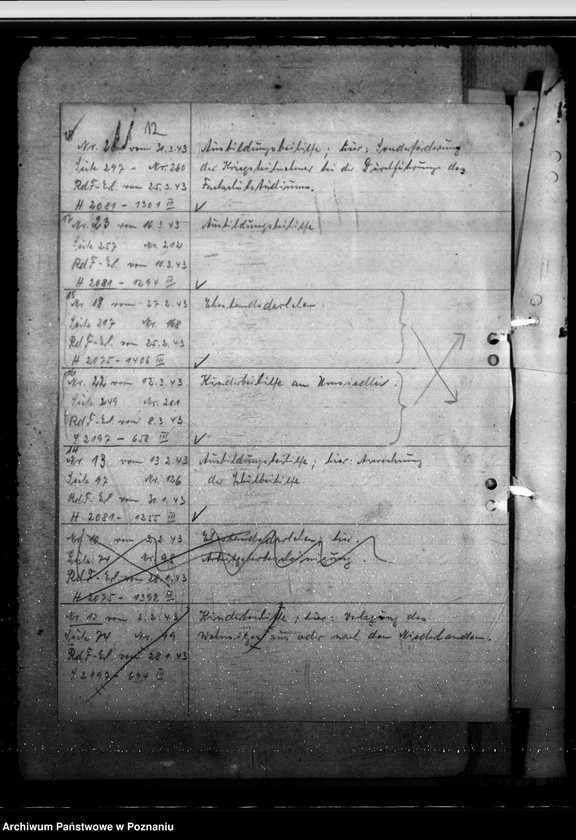 12
18 Nr. 26 vom 31.3.43 Ausbildungsbeihilfe; hier: Sonderförderung
Seite 297 - Nr. 260 der Kriegsteilnehmer bei der Durchführung des
RdF-Erl. vom 25.3.43 Fachschulstudiums.
H 2081 - 1301 III ✓
17 Nr. 23 vom 16.3.43 Ausbildungsbeihilfe
Seite 257 Nr. 212
RdF-Erl. vom 11.3.43
H 2081 - 1294 III ✓
15 Nr. 18 vom 27.2.43 Ehestandsdarlehen.
Seite 217 Nr. 168
RdF-Erl. vom 25.2.43
H 2075 - 1406 III ✓
16 Nr. 22 vom 12.3.43 Kinderbeihilfe an Umsiedler.
Seite 249 Nr. 201
RdF-Erl. vom 8.3.43
S 2197 - 658 III ✓
14
Nr. 13 vom 13.2.43 Ausbildungsbeihilfe; hier: Anrechnung
Seite 97 Nr. 126 der Schulbeihilfe
RdF-Erl. vom 30.1.43
H 2081 - 1255 III ✓
Nr. 10 vom 2.2.43 Ehestandsdarlehen, hier:
Seite 74 Nr. 98
RdF-Erl. vom 28.1.43
H 2075 - 1392 III
Nr. 12 vom 2.2.43 Kinderbeihilfe; hier: Verlegung des
Seite 74 Nr. 99 Wohnsitzes aus oder nach den Niederlanden.
RdF-Erl. vom 28.1.43
S 2197 - 644 III
Archiwum Państwowe w Poznaniu